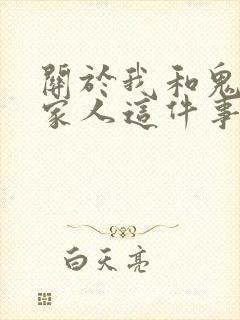 關於我和鬼
家人這件事
白天亮